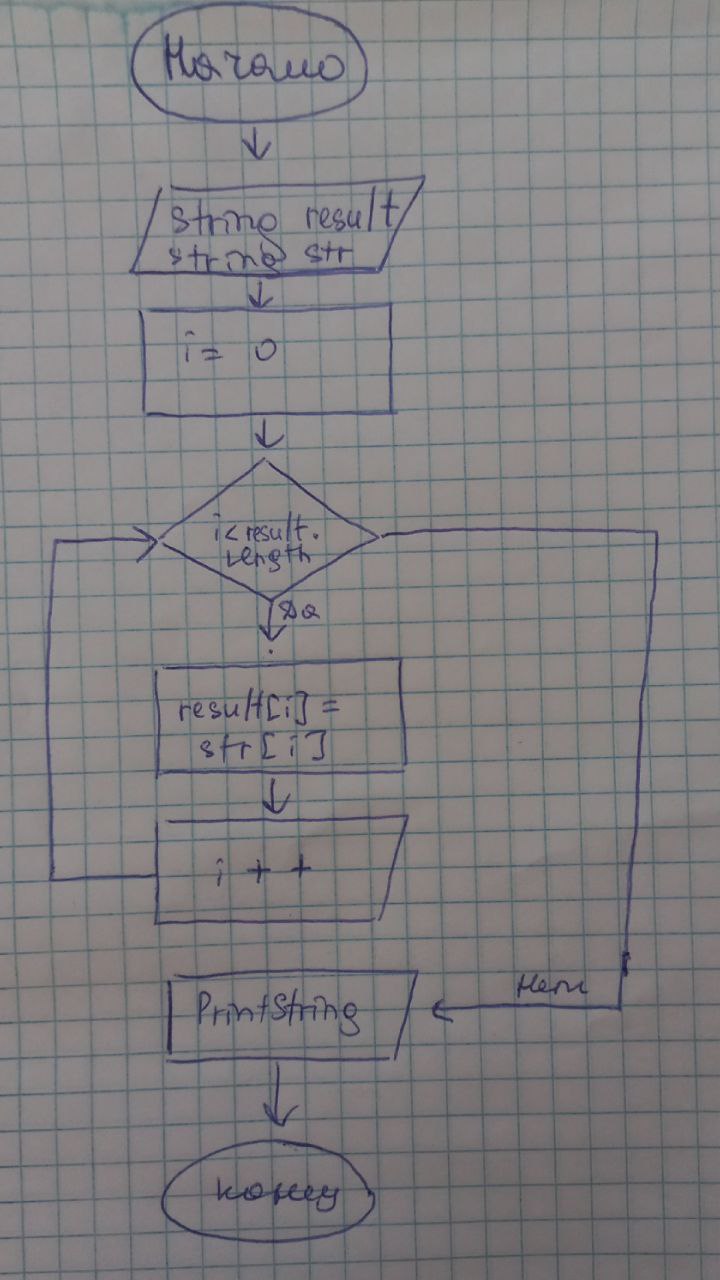 Начало
string result
string str
i = 0
i < result.
Length
Да
result[i] =
str [ i ]
i + +
Нет
PrintString
конец